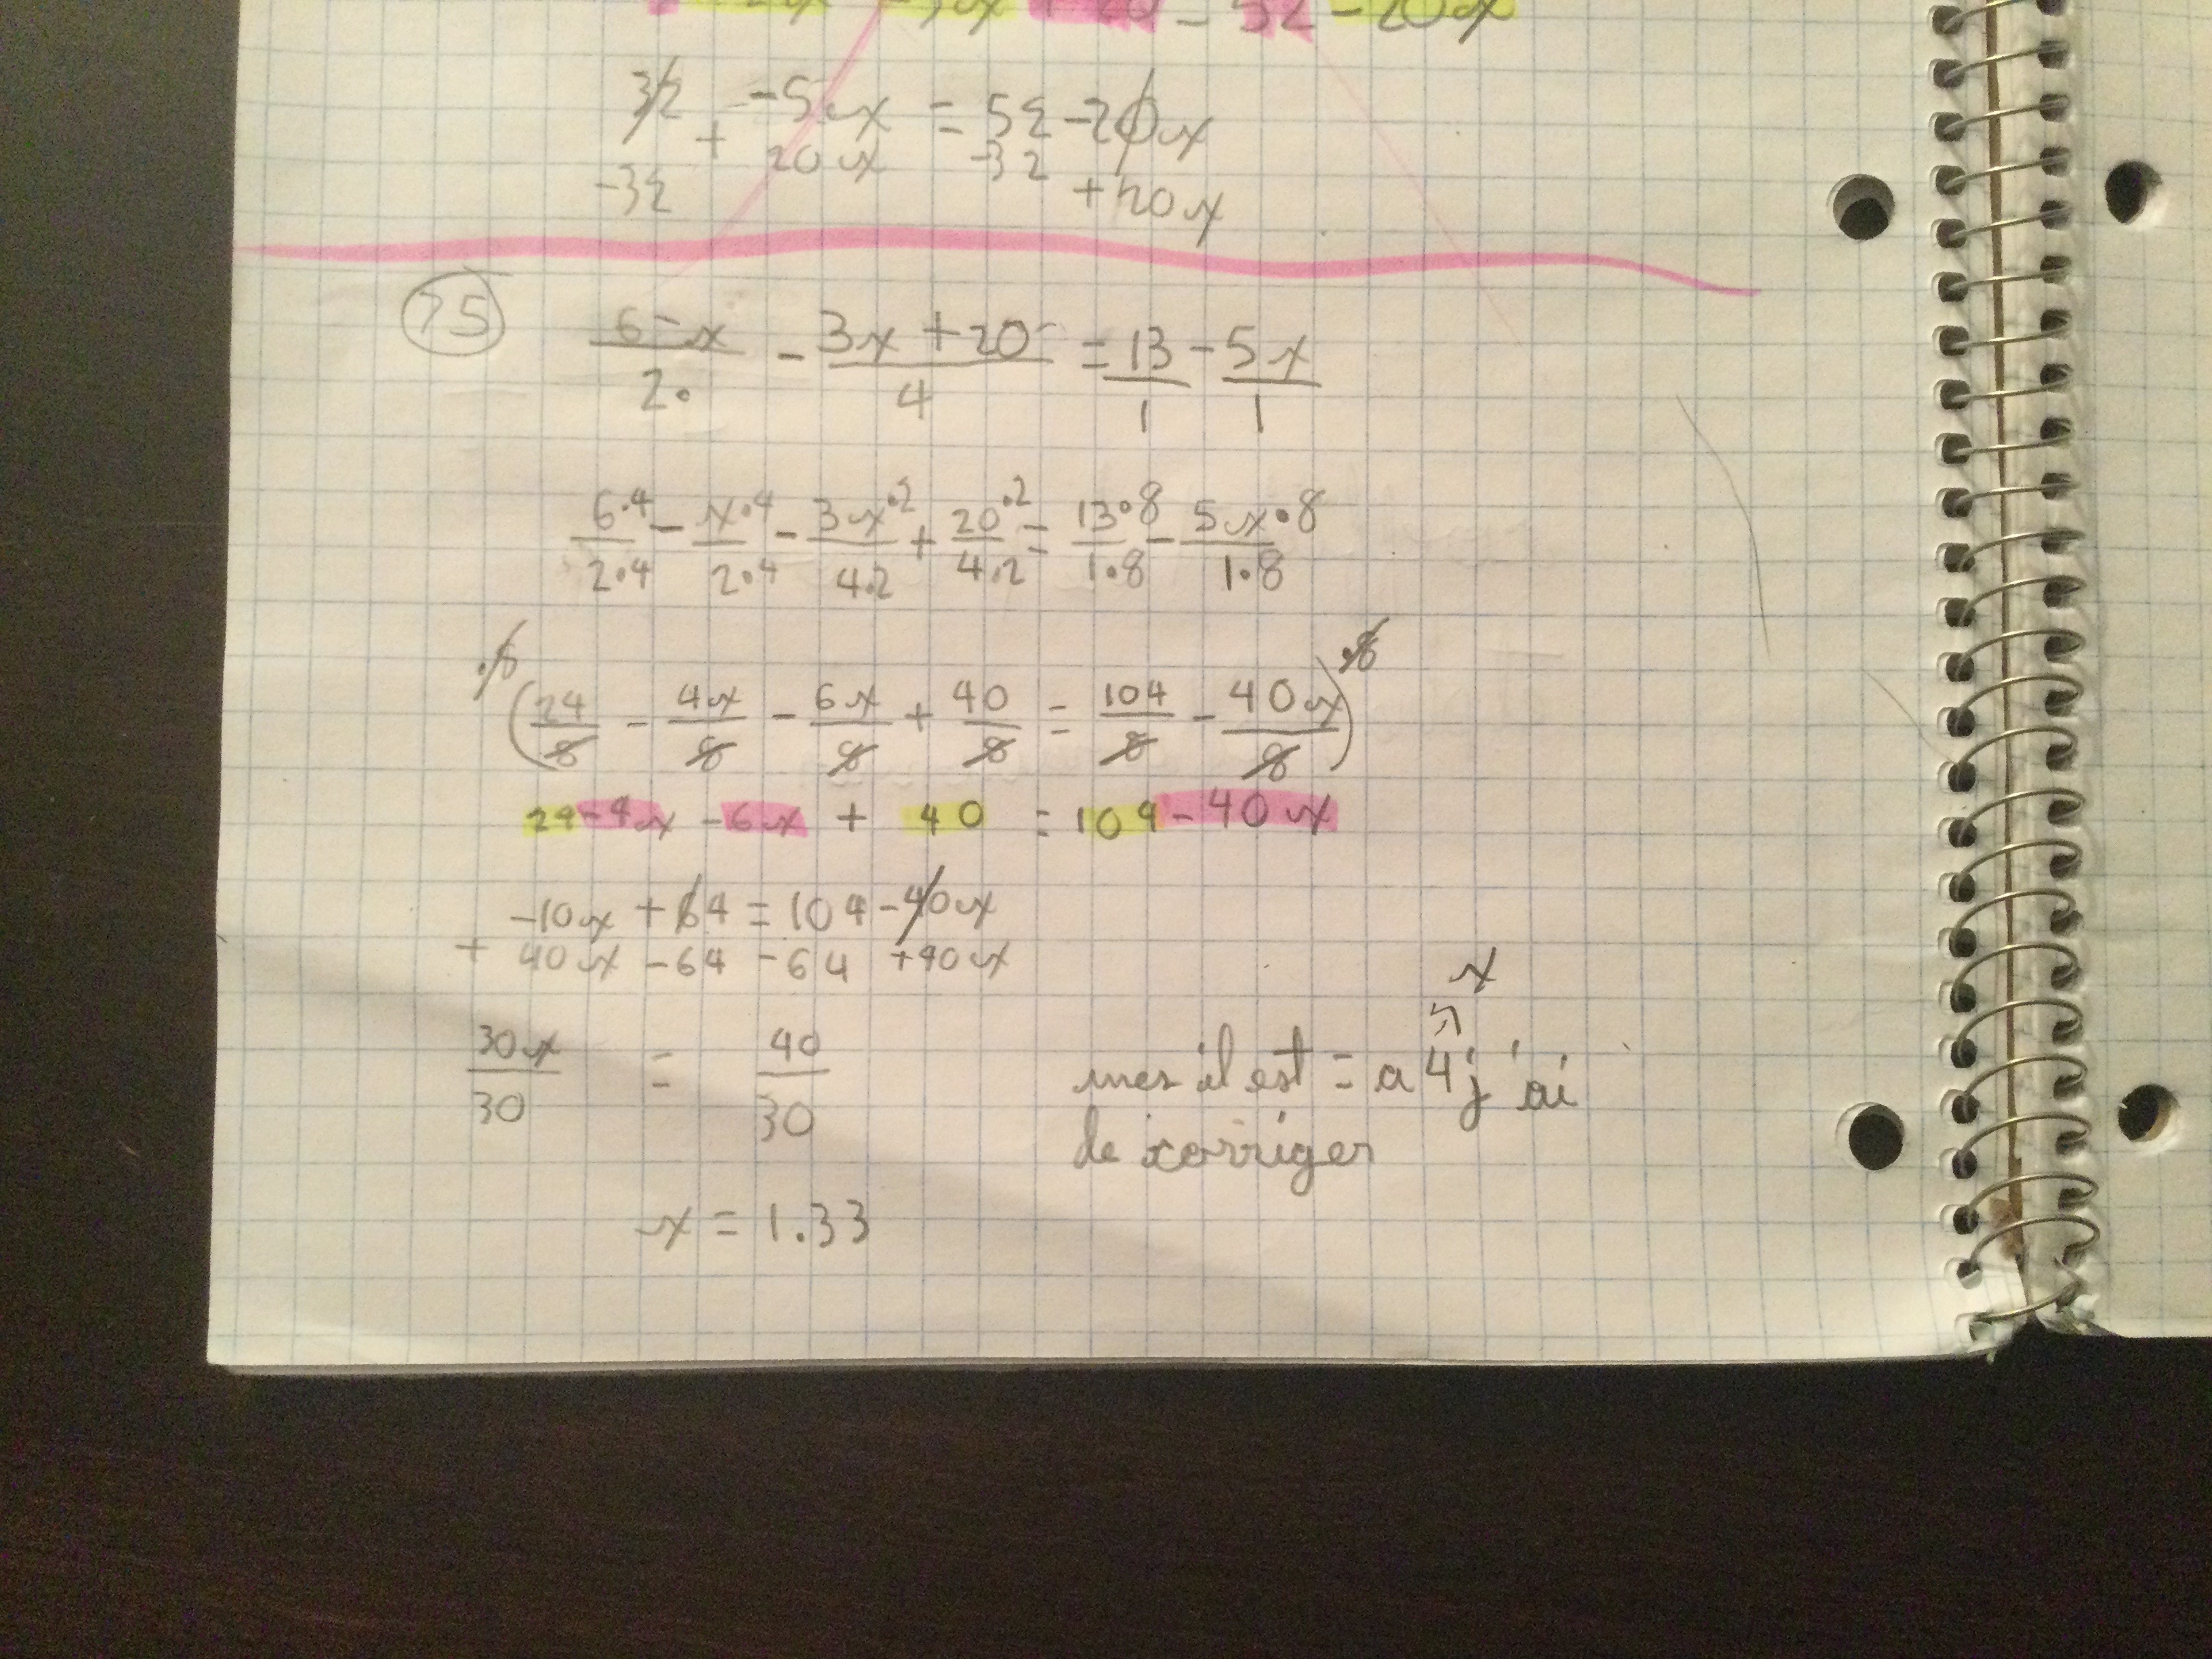 32 + -5x = 52 - 20x
-32 + 20x -32 + 20x
75
6 - x / 2 - 3x + 20 / 4 = 13 / 1 - 5x / 1
6·4 / 2·4 - x·4 / 2·4 - 3x·2 / 4·2 + 20·2 / 4·2 = 13·8 / 1·8 - 5x·8 / 1·8
·8 ( 24 / 8 - 4x / 8 - 6x / 8 + 40 / 8 = 104 / 8 - 40x / 8 ) ·8
24 - 4x - 6x + 40 = 104 - 40x
-10x + 64 = 104 - 40x
+ 40x - 64 - 64 + 40x
30x / 30 = 40 / 30
x
mes il est = a 4 j'ai
de corriger
x = 1.33